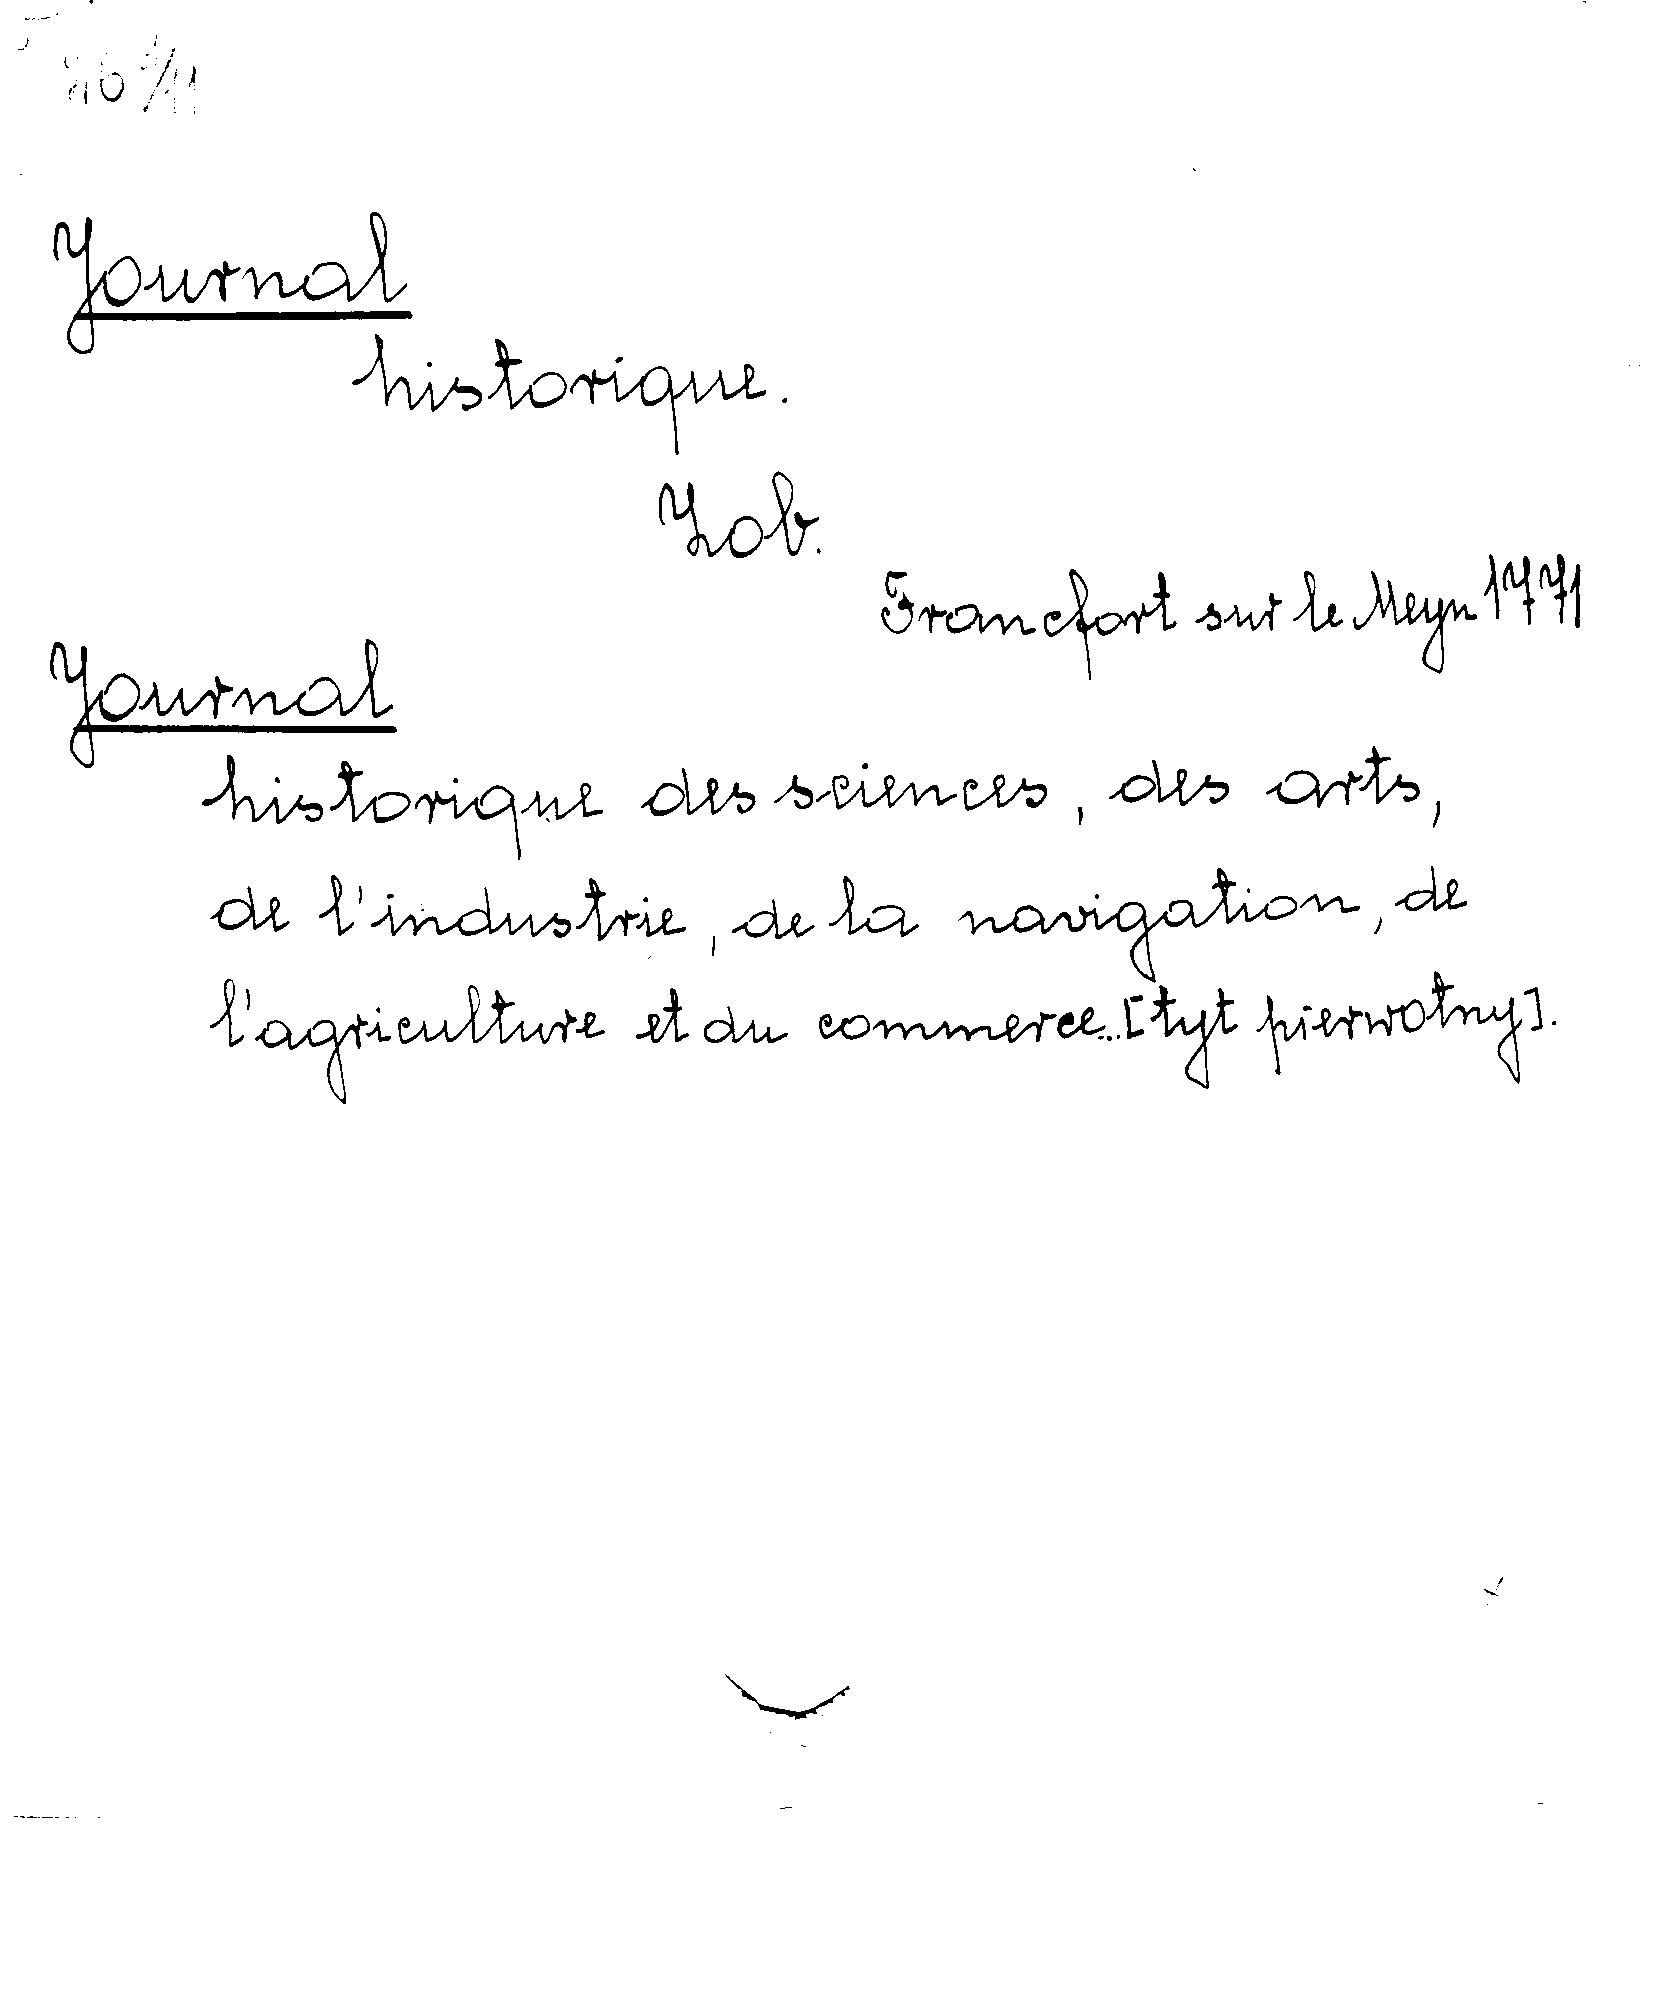 Journal
historique.
Zob.
Francfort sur le Meyn 1771
Journal
historique des sciences, des arts,
de l'industrie, de la navigation, de
l'agriculture et du commerce... [tyt pierwotny].